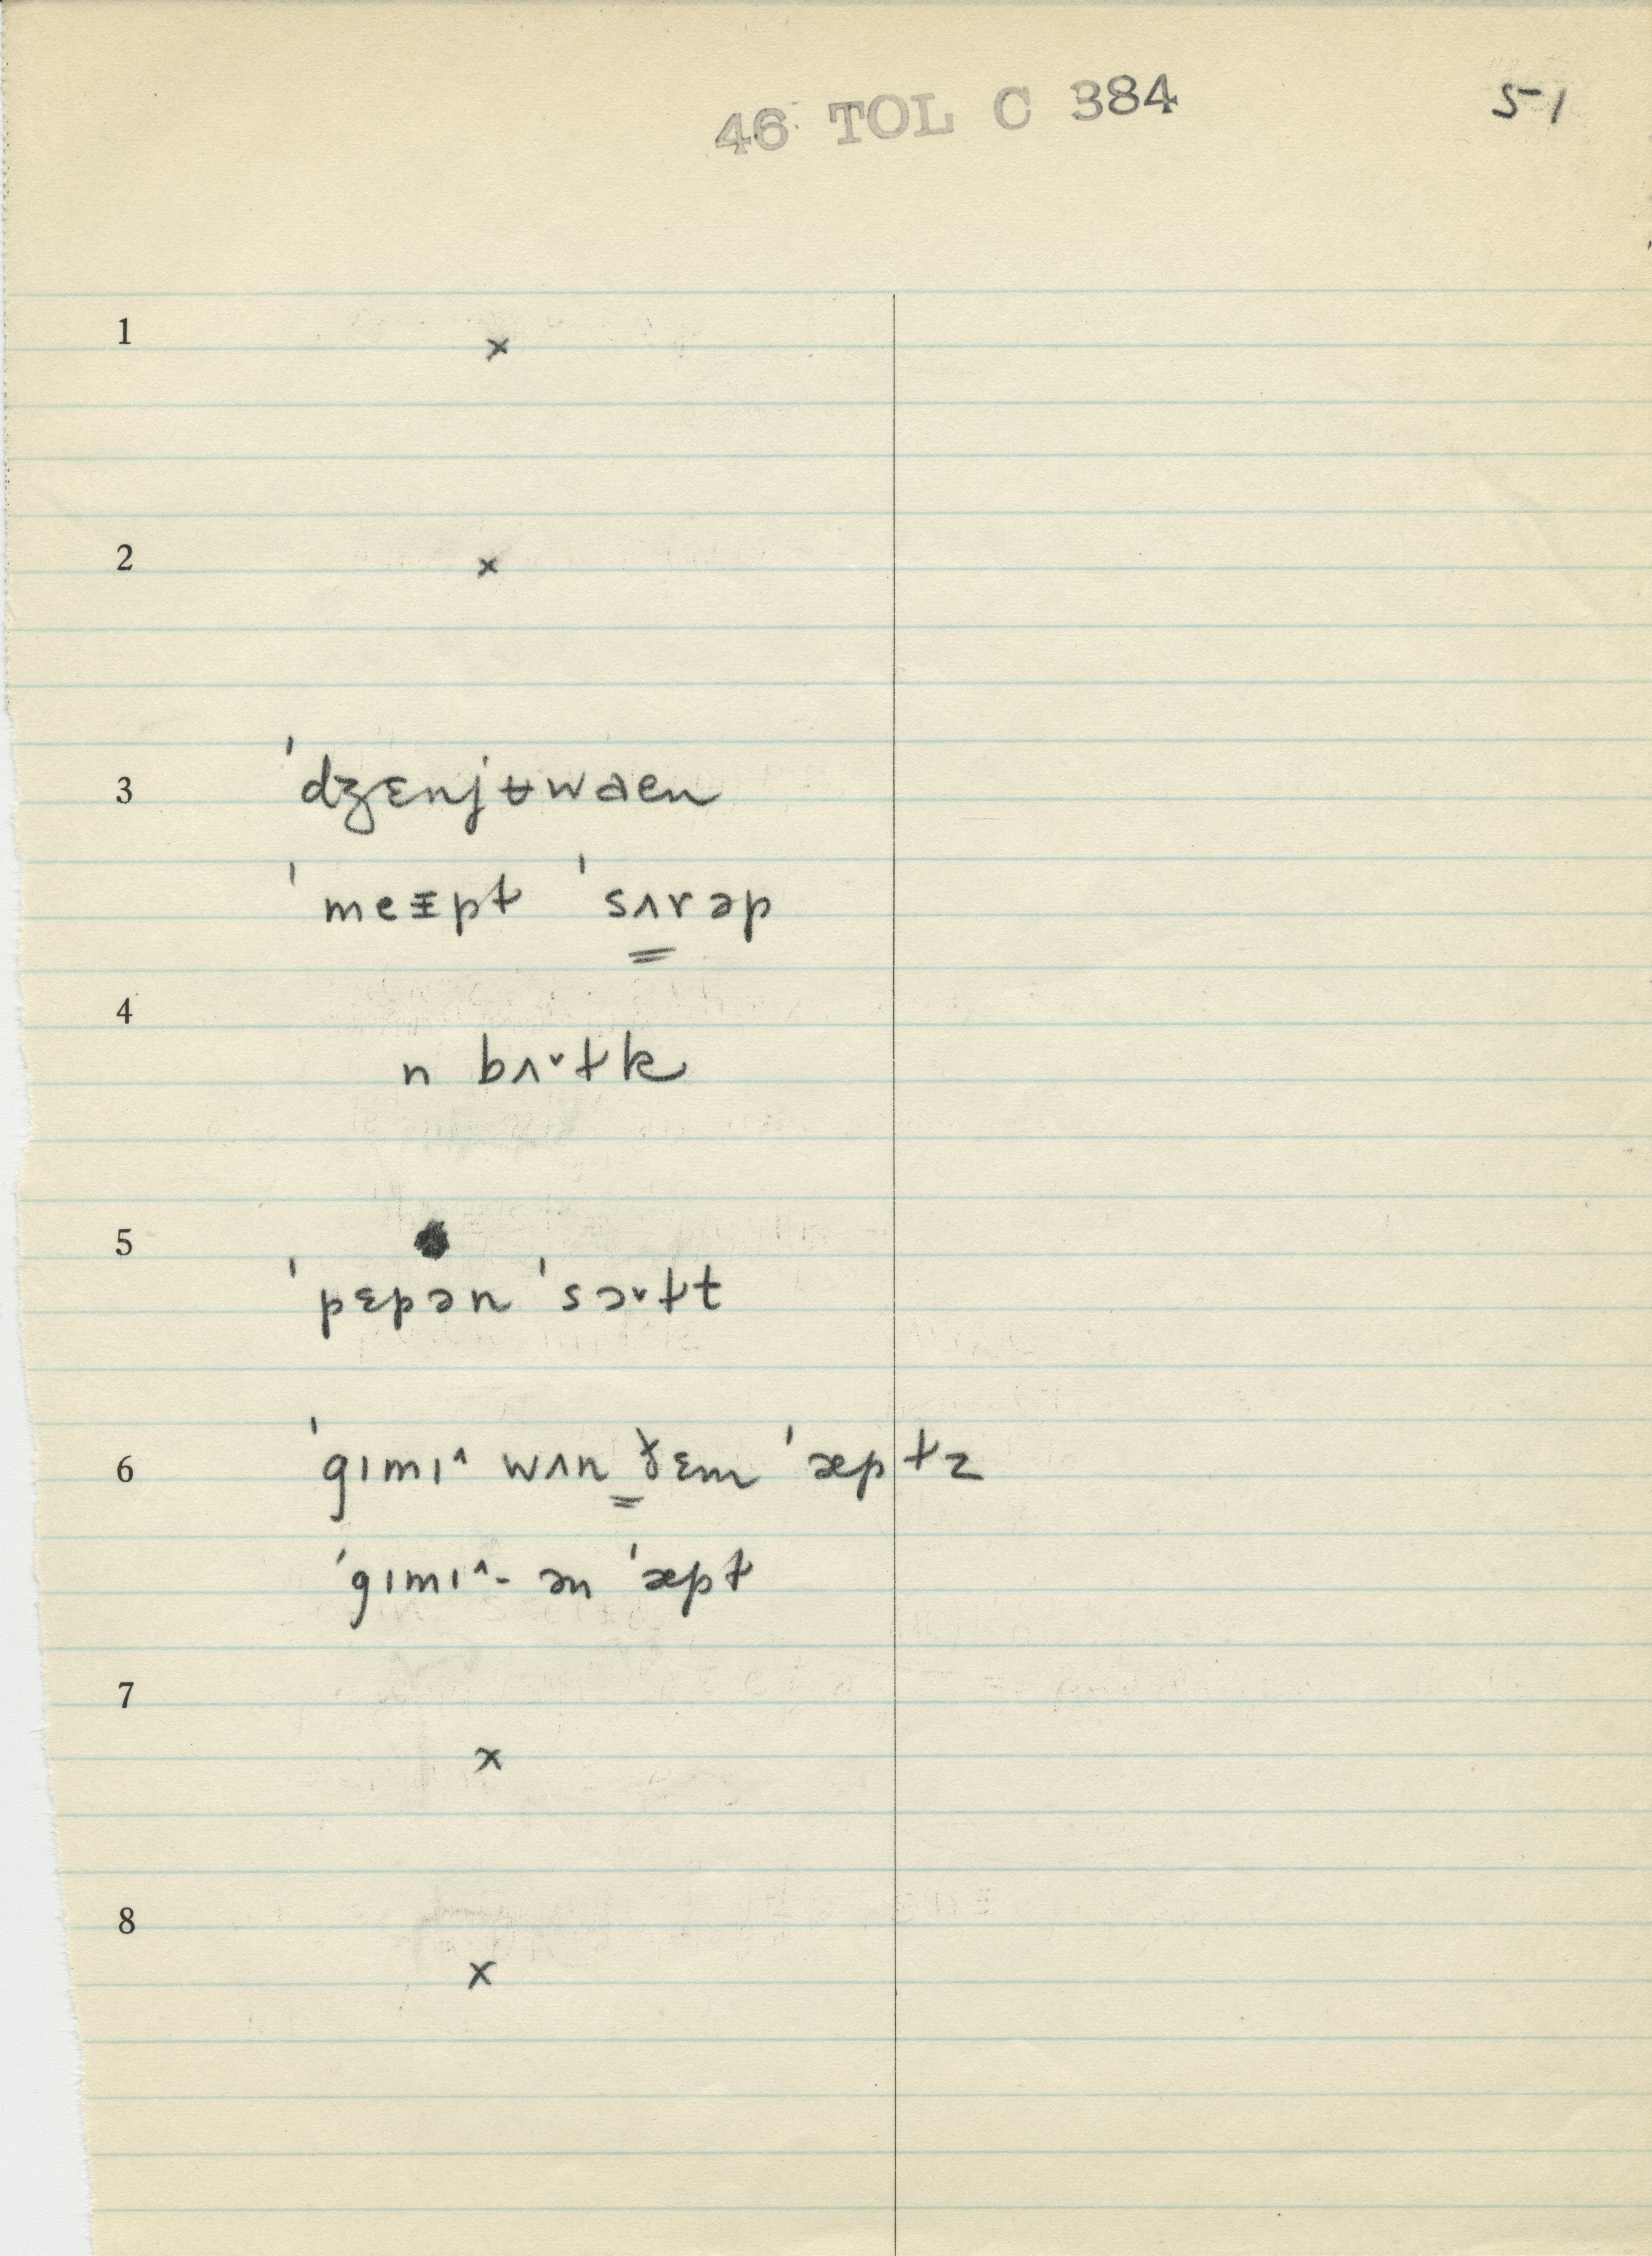 46 TOL C 384
51
1 ×
2 ×
3 ˈdʒɛnjʉwaen
ˈmeɪ̵pt ˈsʌrəp
4
n bʌ˅tk
5
ˈpɛpən ˈsɔ˅tt
6 ˈgɪmɪ˄ wʌn ðɛm ˈæptz
ˈgɪmɪ˄- ən ˈæpt
7
×
8
×